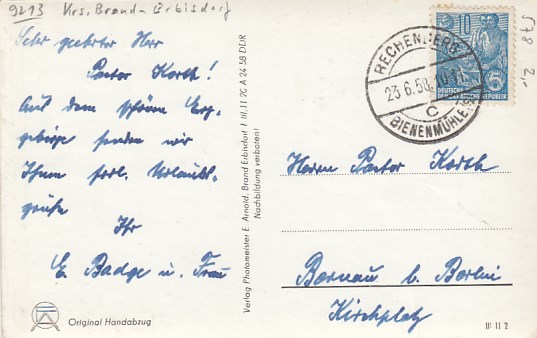 9213 Krs. Brand-Erbisdorf
Sehr geehrter Herr
Pastor Korth!
Aus dem schönen Erz-
gebirge senden wir
Ihnen frdl. Urlaubs-
grüße
Ihr
E. Badge u. Frau
Original Handabzug
Verlag Photomeister E. Arnold, Brand Erbisdorf I III.11 7C A 24 58 DUR
Nachbildung verboten!
RECHENBERG-
23.6.58.
C
BIENENMÜHLE
10
DEUTSCHE
DEMOKRATISCHE REPUBLIK
578 2,-
Herrn Pastor Korth
Bernau b. Berlin
Kirchplatz
11 2